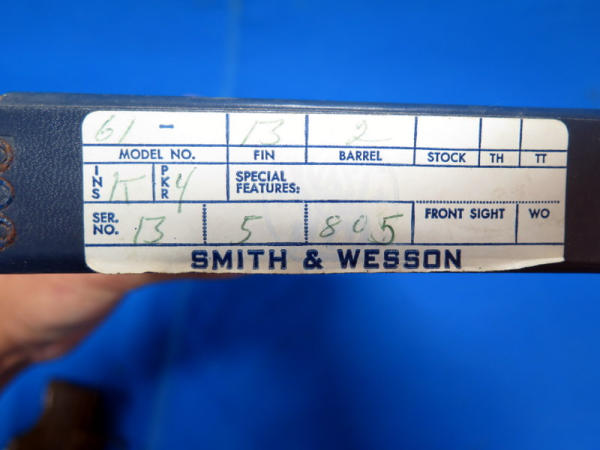 61 - B 2
MODEL NO. FIN BARREL STOCK TH TT
INS K PKR 4 SPECIAL FEATURES:
SER. NO. B 5 805 FRONT SIGHT WO
SMITH & WESSON